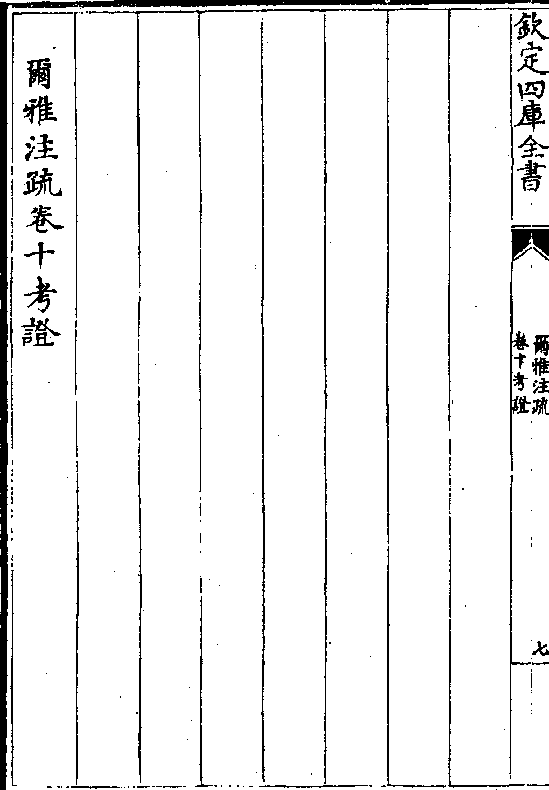 欽定四庫全書
爾雅注疏
卷十考證
七
爾雅注疏卷十考證